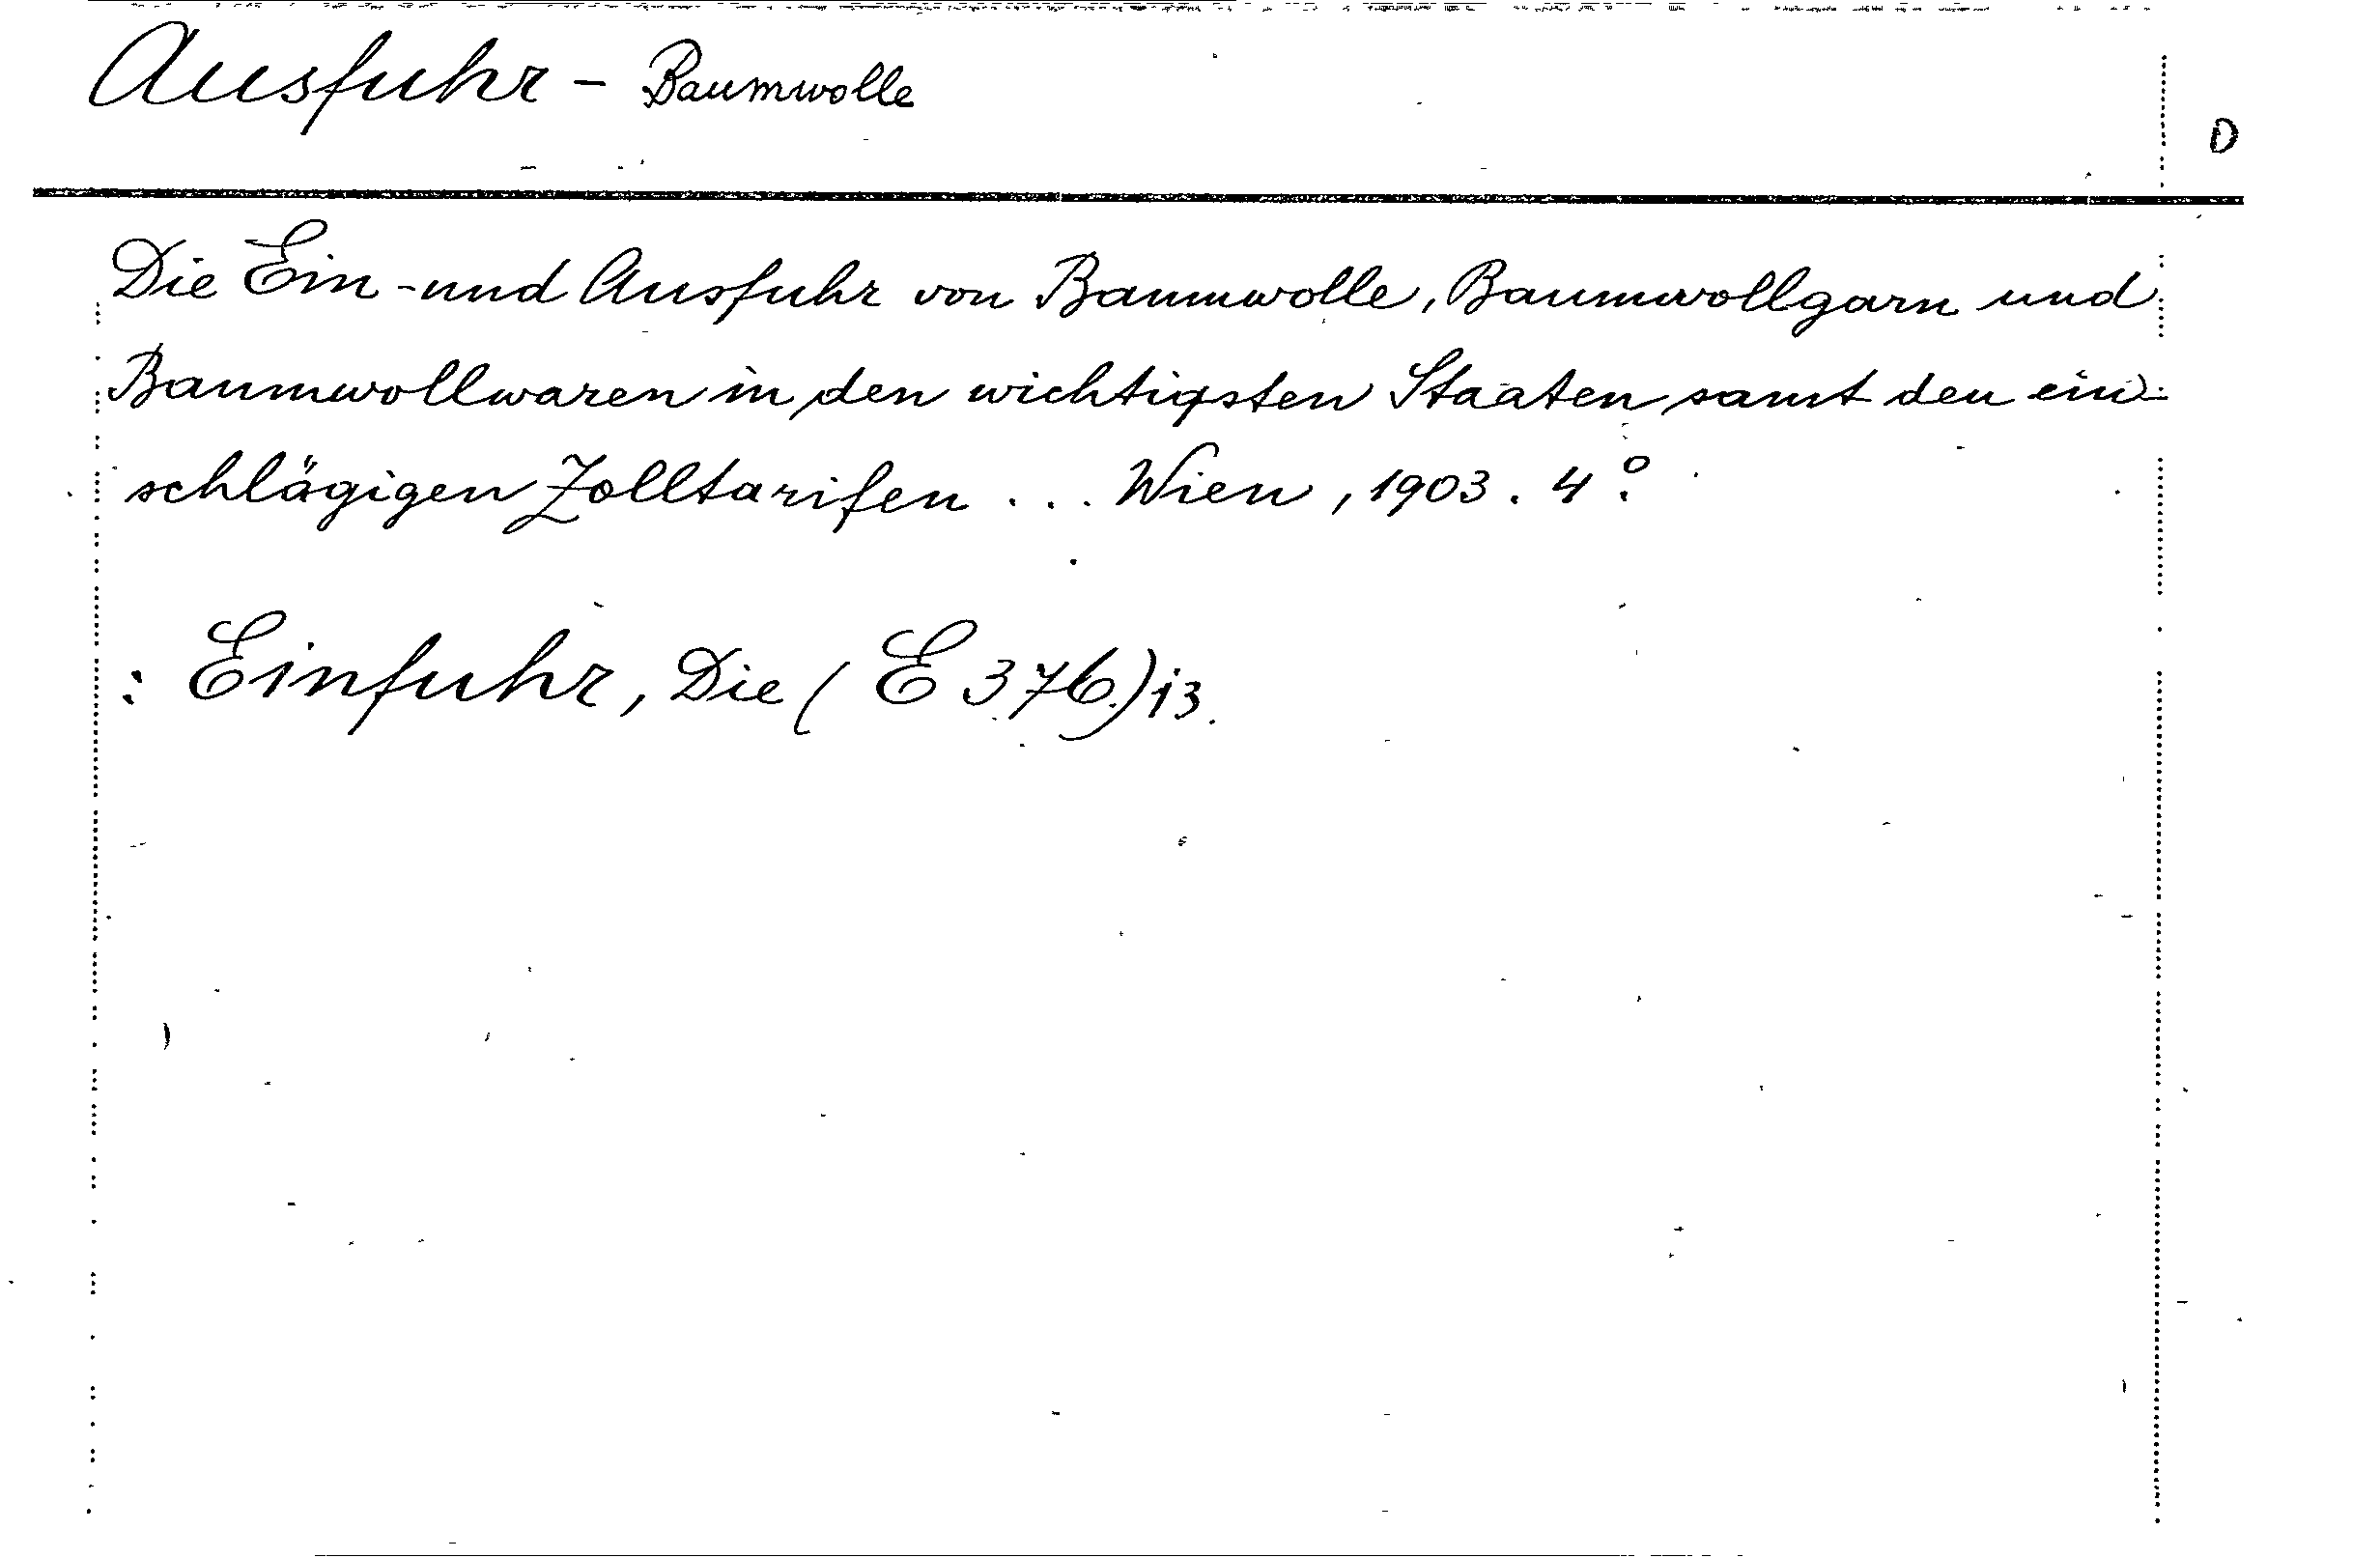 Ausfuhr - Baumwolle
D
Die Ein- und Ausfuhr von Baumwolle, Baumwollgarn und
Baumwollwaren in den wichtigsten Staaten samt den ein-
schlägigen Zolltarifen ... Wien, 1903. 4°.
: Einfuhr, Die (E 376.) i3.